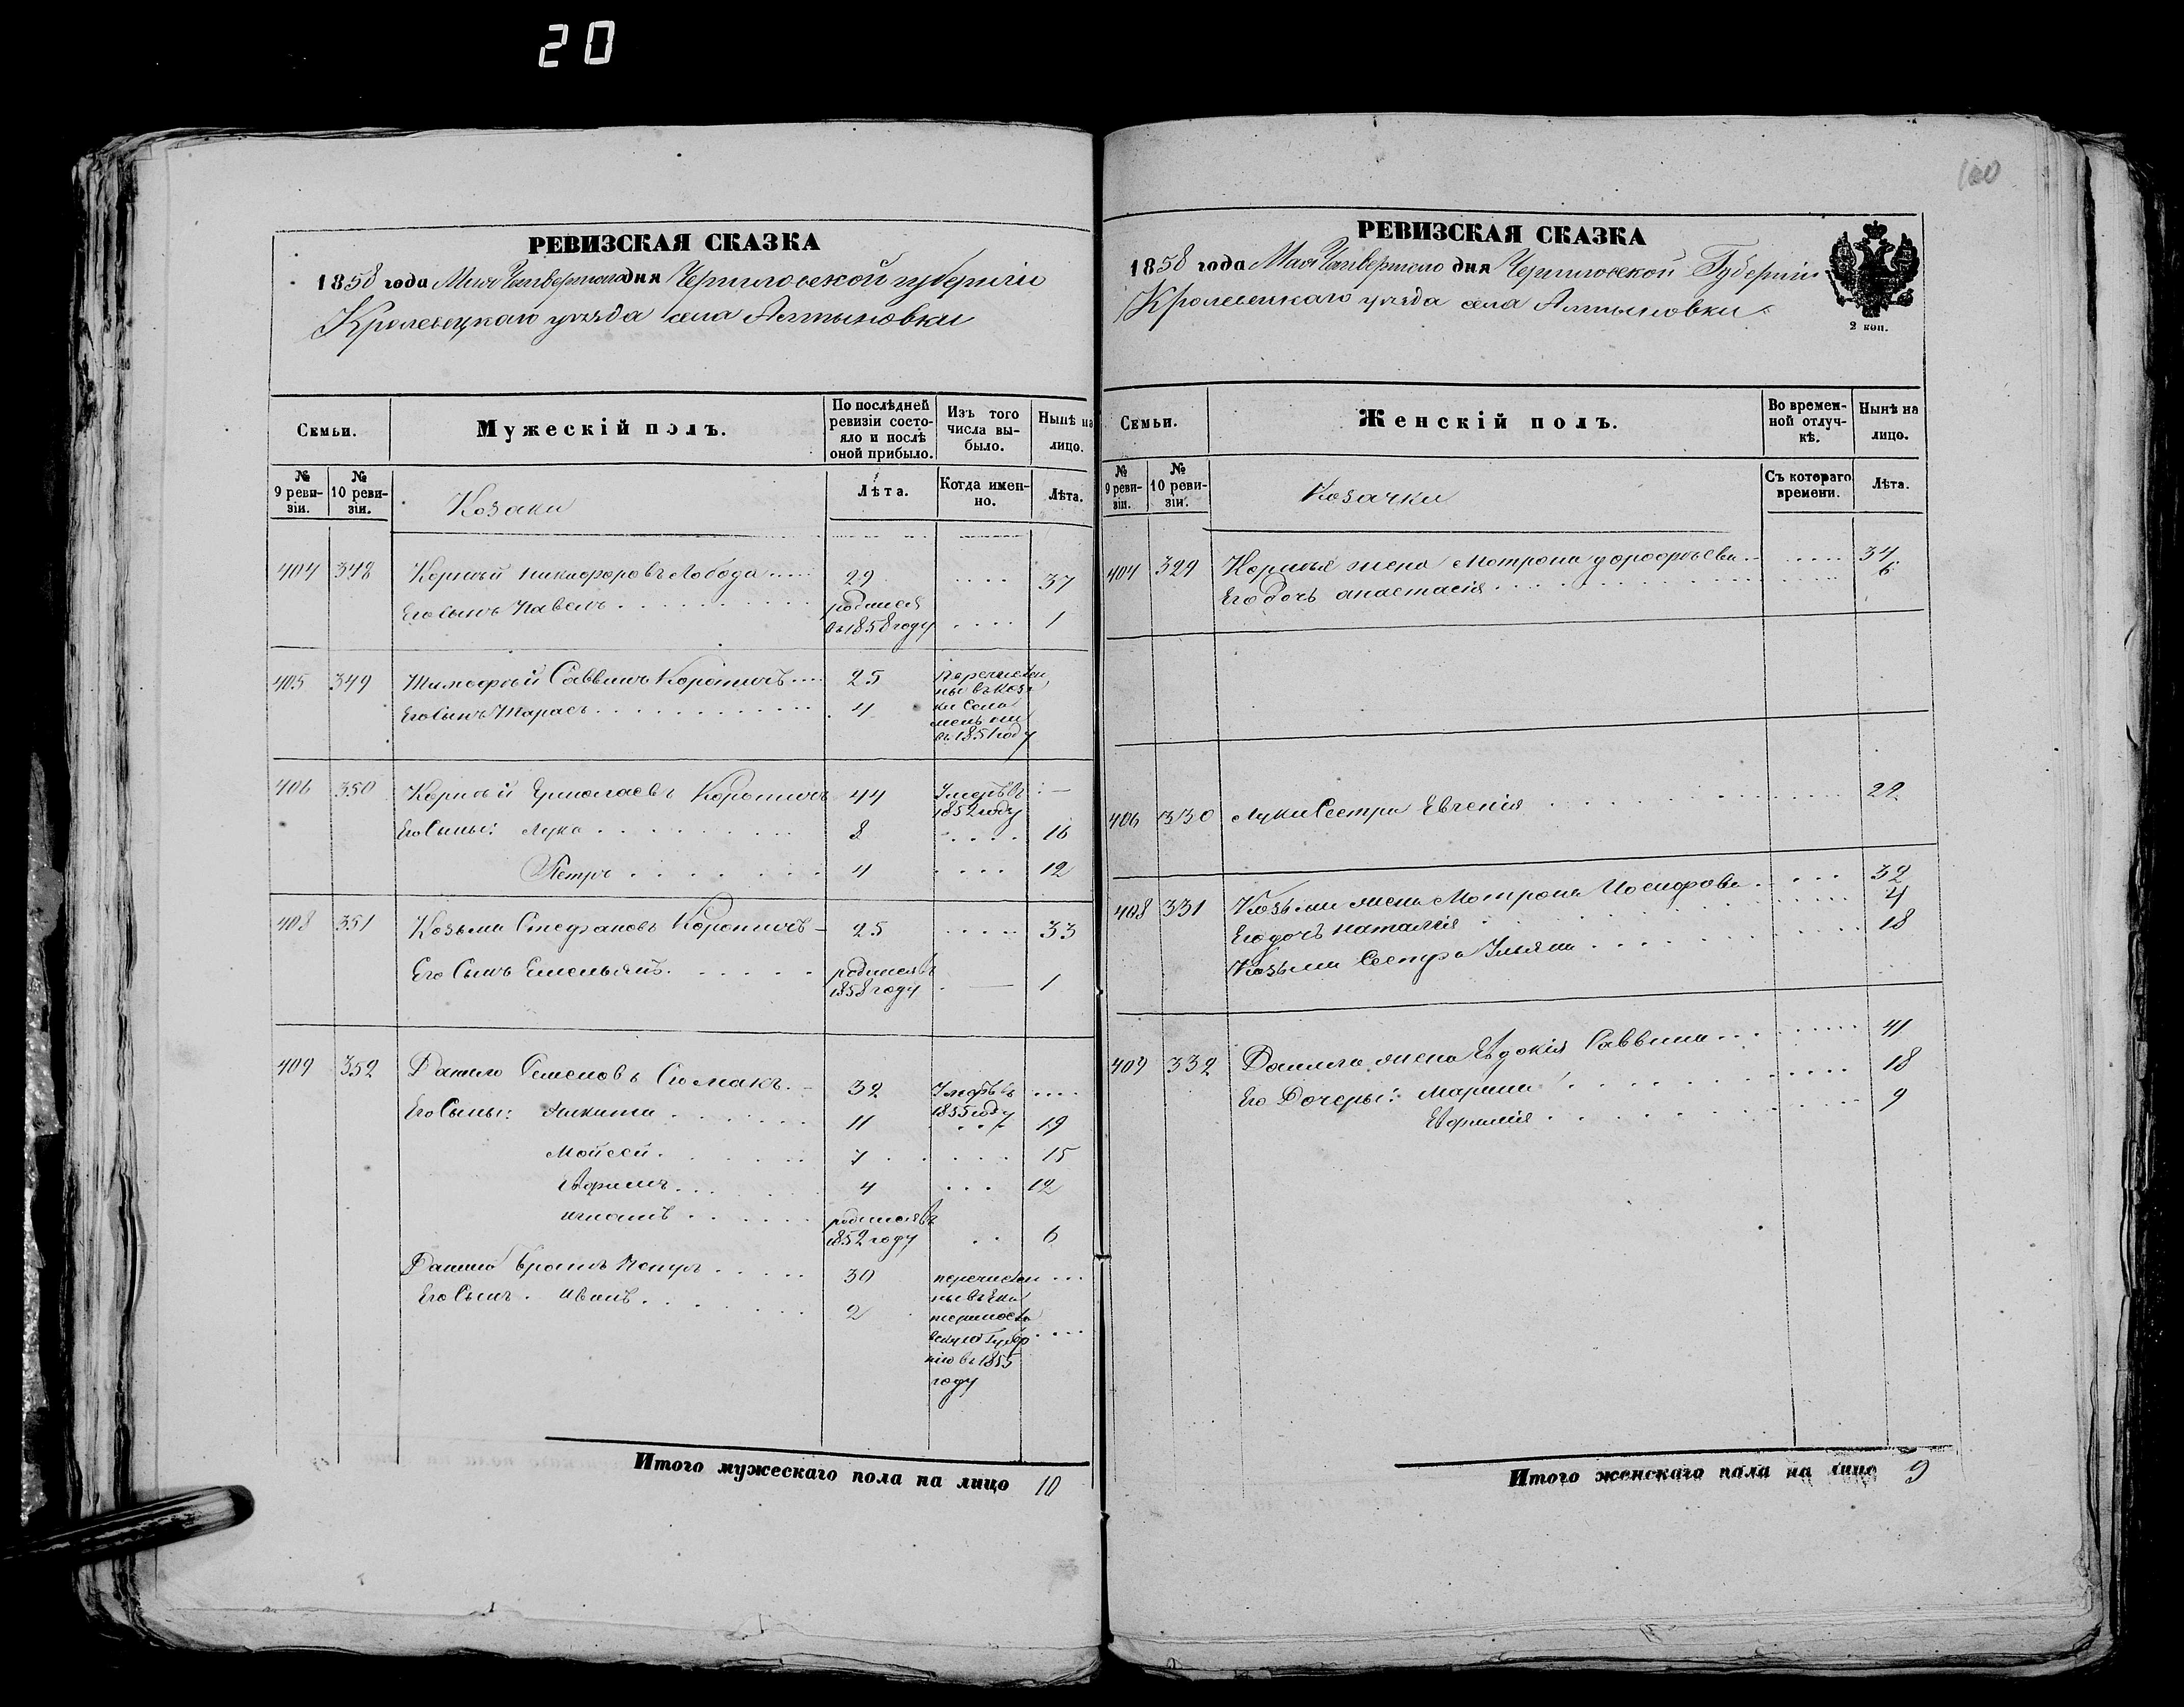 20
РЕВИЗСКАЯ СКАЗКА
1858 года Мая Четвертого дня Черниговской губернии
Кролевецкаго уезда села Алтыновки
Семьи.
Мужескій полъ.
По послѣдней ревизіи состояло и послѣ оной прибыло.
Изъ того числа выбыло.
Нынѣ на лицо.
№ 9 ревизіи.
№ 10 ревизіи.
Козаки
Лѣта.
Когда именно.
Лѣта.
404 348 Корнѣй Никифоровъ Лобода 29 37
Его сынъ Павелъ родился въ 1858 году 1
405 349 Тимофѣй Саввинъ Коротичъ 25 перечислены въ козаки
Его Сынъ Тарасъ 4 въ 1851 году
406 350 Корнѣй Ермолаевъ Коротичъ 44 Умеръ въ 1852 году
Его Сыны: Лука 8 16
Петръ 4 12
408 351 Козьма Стефановъ Коротичъ 25 33
Его Сынъ Емельянъ родился въ 1858 году 1
409 352 Данило Семеновъ 32 Умеръ въ 1855 году
Его Сыны: Никита 11 19
Мойсей 7 15
Ефимъ 4 12
Игнатъ родился въ 1852 году 6
Данила братъ 30 перечислены въ Екатеринославскую Губернію въ 1855 году
Его Сынъ Иванъ 2
Итого мужескаго пола на лицо 10
100
РЕВИЗСКАЯ СКАЗКА
1858 года Мая Четвертого дня Черниговской Губерніи
Кролевецкаго уезда села Алтыновки
2 коп.
Семьи.
Женскій полъ.
Во временной отлучкѣ.
Нынѣ на лицо.
№ 9 ревизіи.
№ 10 ревизіи.
Козачки
Съ котораго времени.
Лѣта.
404 329 Корнѣя жена Мотрона Дорофѣева 34
Его дочь Анастасія 6
406 330 Луки Сестра Евгенія 22
408 331 Козьмы жена Мотрона Іосифова 32
Его дочь Наталія 4
Козьмы Сестра Ульяна 18
409 332 Данила жена Евдокія Саввина 41
Его Дочеры: Марина 18
Ефимія 9
Итого женскаго пола на лицо 9